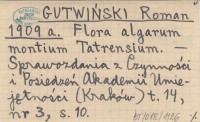 GUTWIŃSKI Roman
1909 a. Flora algarum
montium Tatrensium. —
Sprawozdania z Czynności
i Posiedzeń Akademii Umie-
jętności (Kraków) t. 14,
nr 3, s. 10.